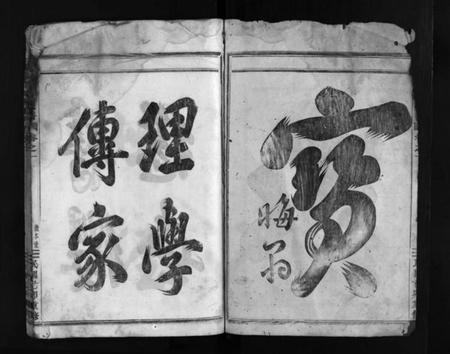 寶
晦翁
理學
傳家